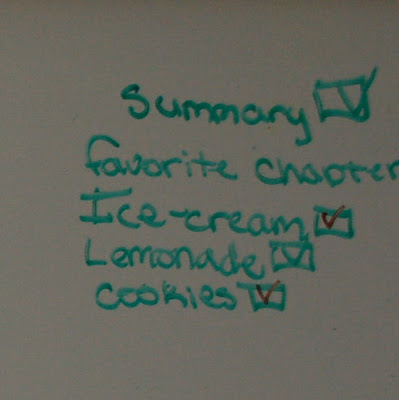 Summary
favorite chapter
Ice-cream
Lemonade
cookies